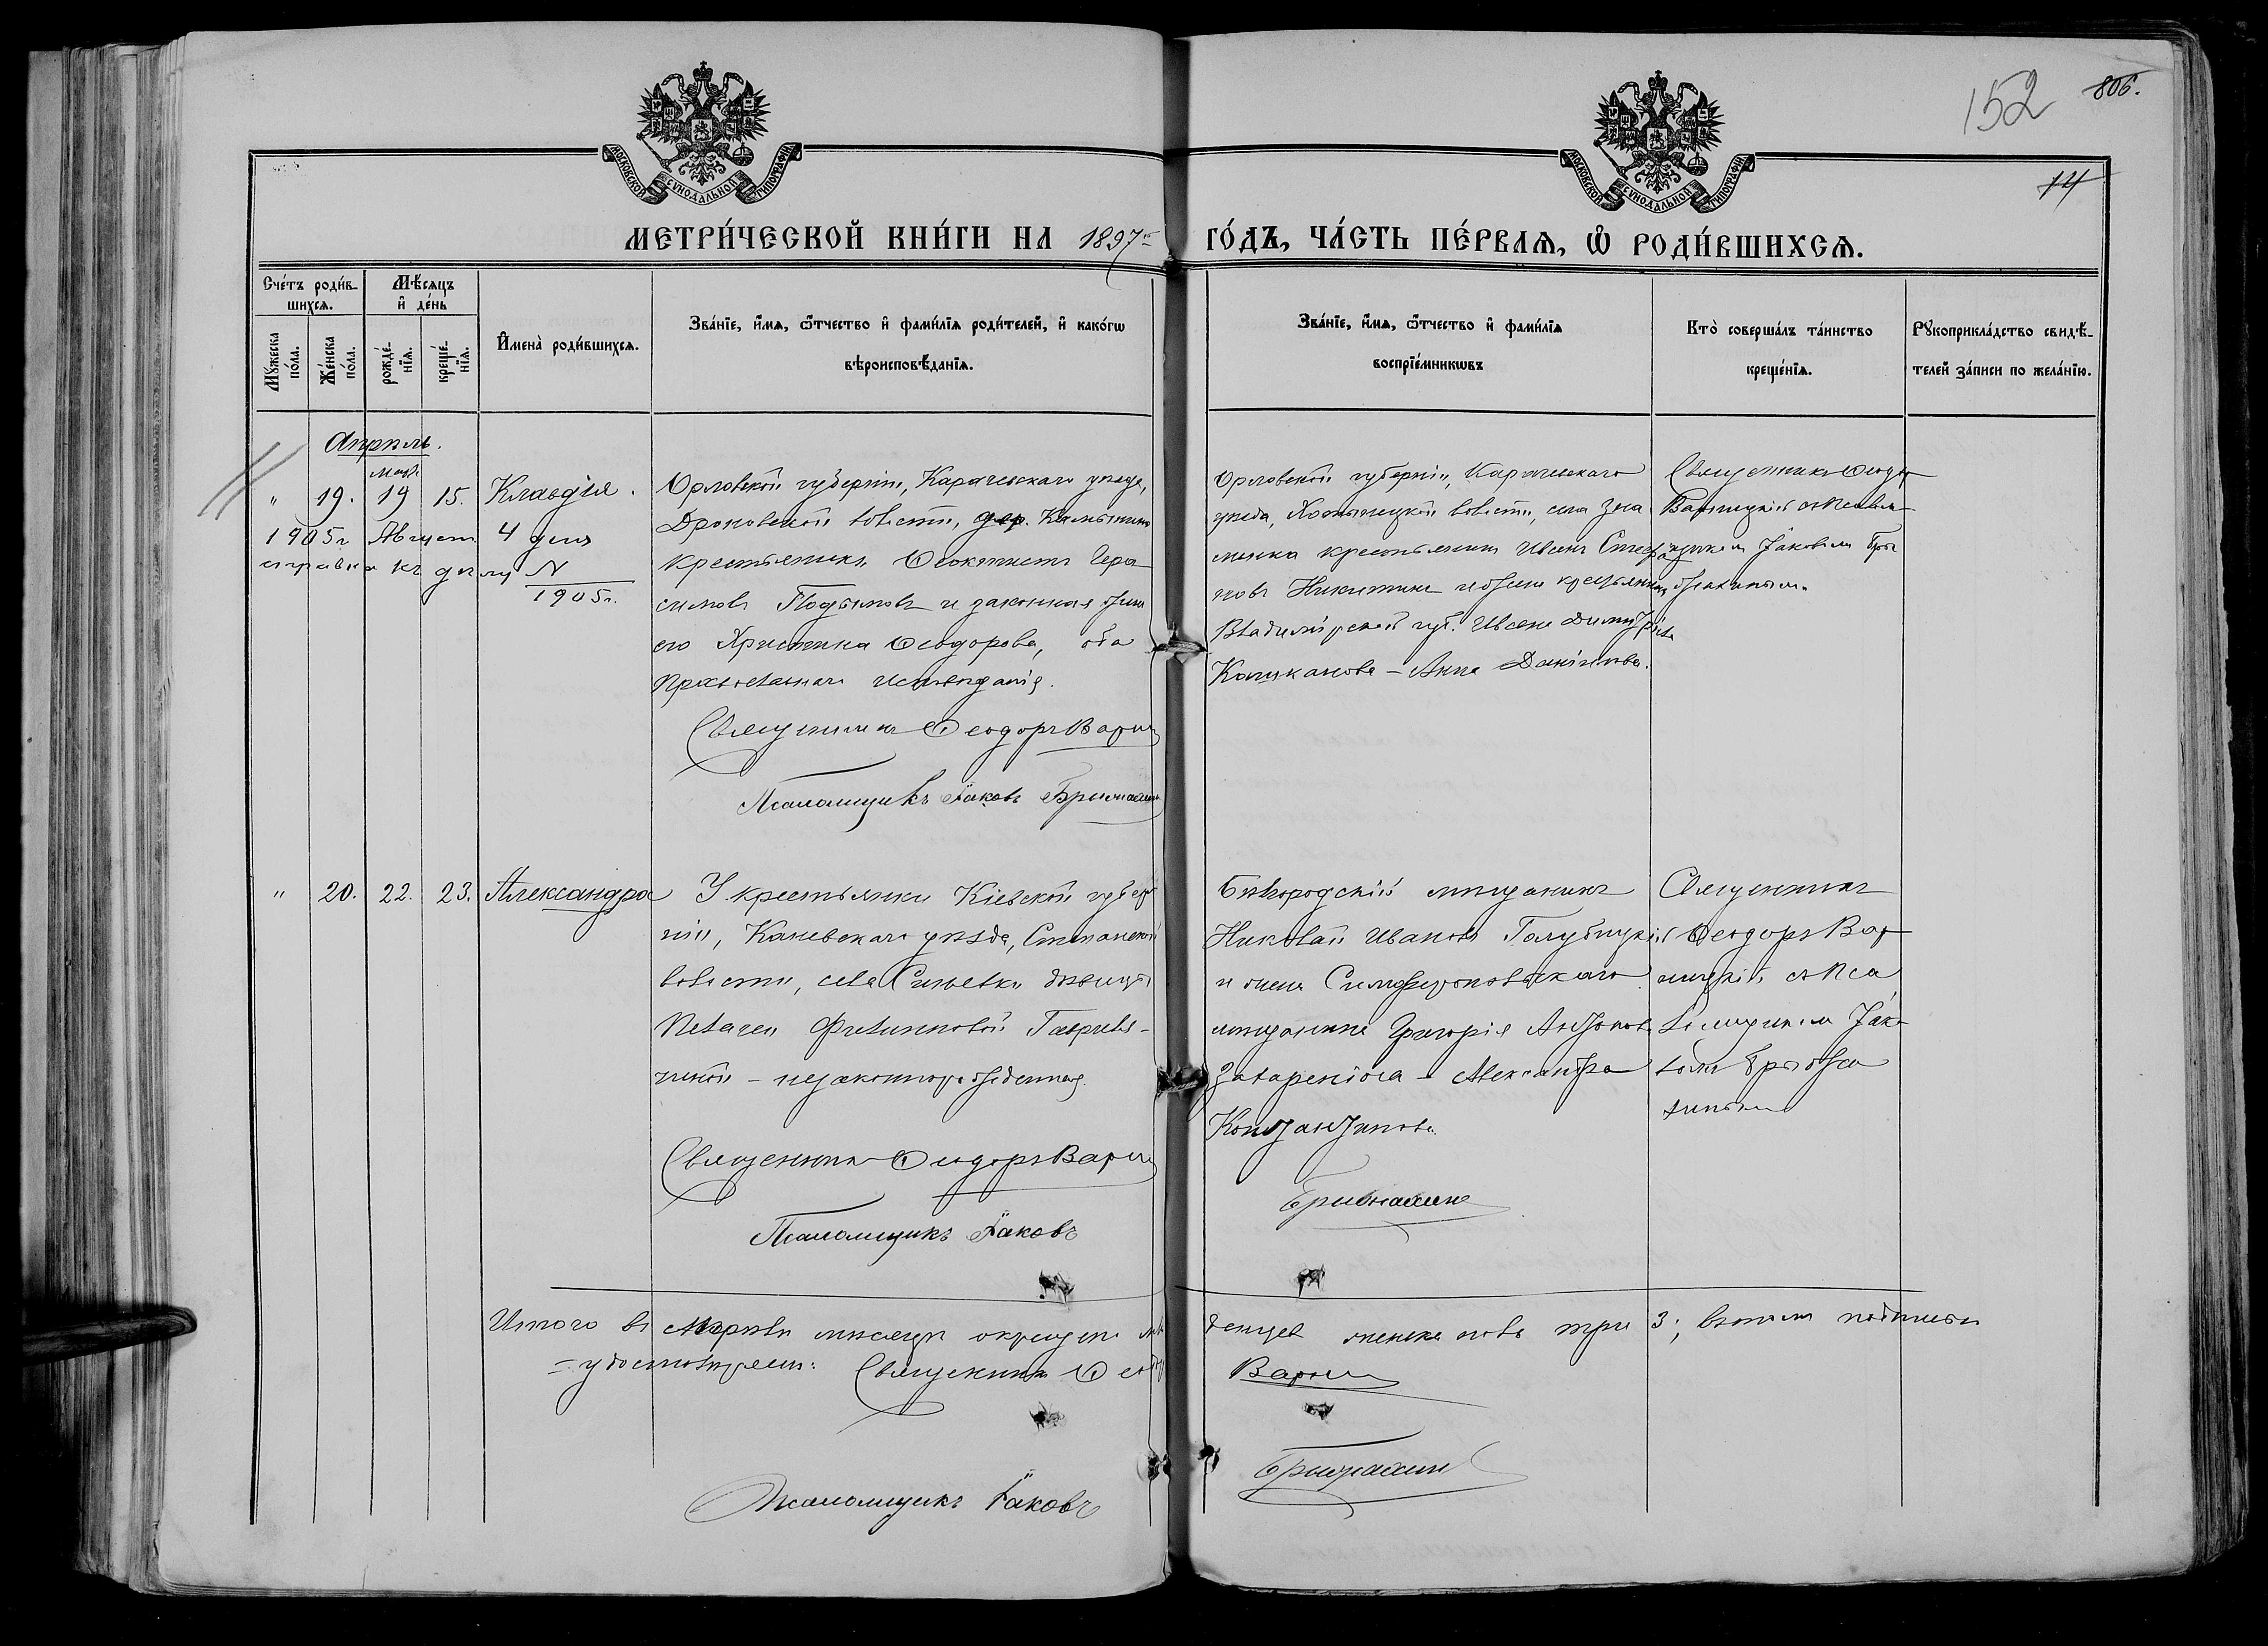 152 806.
14
МОСКОВСКОЙ СУНОДАЛЬНОЙ ТИПОГРАФІИ
МОСКОВСКОЙ СУНОДАЛЬНОЙ ТИПОГРАФІИ
МЕТРИ́ЧЕСКОЙ КНИ́ГИ НА 1897 ГО́ДЪ, ЧА́СТЬ ПЕ́РВАѦ, Ѽ РОДИ́ВШИХСѦ.
Сче́тъ роди́в-
шихсѧ.
Мꙋ́жеска
по́ла.
Же́нска
по́ла.
Мѣ́сѧцъ
и҆ де́нь
рожде́-
нїѧ.
креще́-
нїѧ.
И҆мена̀ роди́вшихсѧ.
Зва́нїе, и҆́мѧ, ѻ҆́тчество и҆ фами́лїѧ роди́телей, и҆ како́гѡ
вѣроисповѣ́данїѧ.
Зва́нїе, и҆́мѧ, ѻ҆́тчество и҆ фами́лїѧ
воспрїе́мникѡвъ
Кто̀ соверша́лъ та́инство
креще́нїѧ.
Рꙋкоприкла́дство свидѣ́-
телей за́писи по жела́нїю.
Апрѣль.
Мар.
" 19. 19 15. Клавдія.
1905 г Август 4 дня
справка къ дѣлу N
1905 г.
Орловской губерніи, Карачевскаго уѣзда,
Дроновской волости, дер.
крестьянинъ Ѳеоктистъ Гера
симовъ и законная жена
его Христина Ѳеодорова, оба
православнаго исповѣданія.
Священникъ Ѳеодоръ Варни
Псаломщикъ Іаковъ
Орловской губерніи, Карачевскаго
уѣзда, волости, села Зна
менка крестьянинъ Иванъ Стефа
новъ Никитинъ и жена крестьянина
Владимірской губ. Ивана Димитріева
Анна Даніилова.
Священникъ Ѳеодоръ
съ псалом
щикомъ Іаковомъ
" 20. 22. 23. Александра
У крестьянки Кіевской губер
ніи, Каневскаго уѣзда, Степанской
волости, села Синявки дѣвицы
Пелагеи Филипповой Гаврил
незаконнорожденная.
Священникъ Ѳеодоръ Варни
Псаломщикъ Іаковъ
Бѣлгородскій мѣщанинъ
Николай Ивановъ Голубицкій
и жена Симферопольскаго
мѣщанина Григорія Антонова
Александра
Константинова.
Священникъ
Ѳеодоръ Вар
ницкій съ Пса
ломщикомъ Іако
вомъ
Итого въ Апрѣлѣ мѣсяцѣ окрещено мла
денцев женска пола три 3; въ чемъ подписом
удостовѣряемъ: Священникъ Ѳеод
Варни
Псаломщикъ Іаковъ